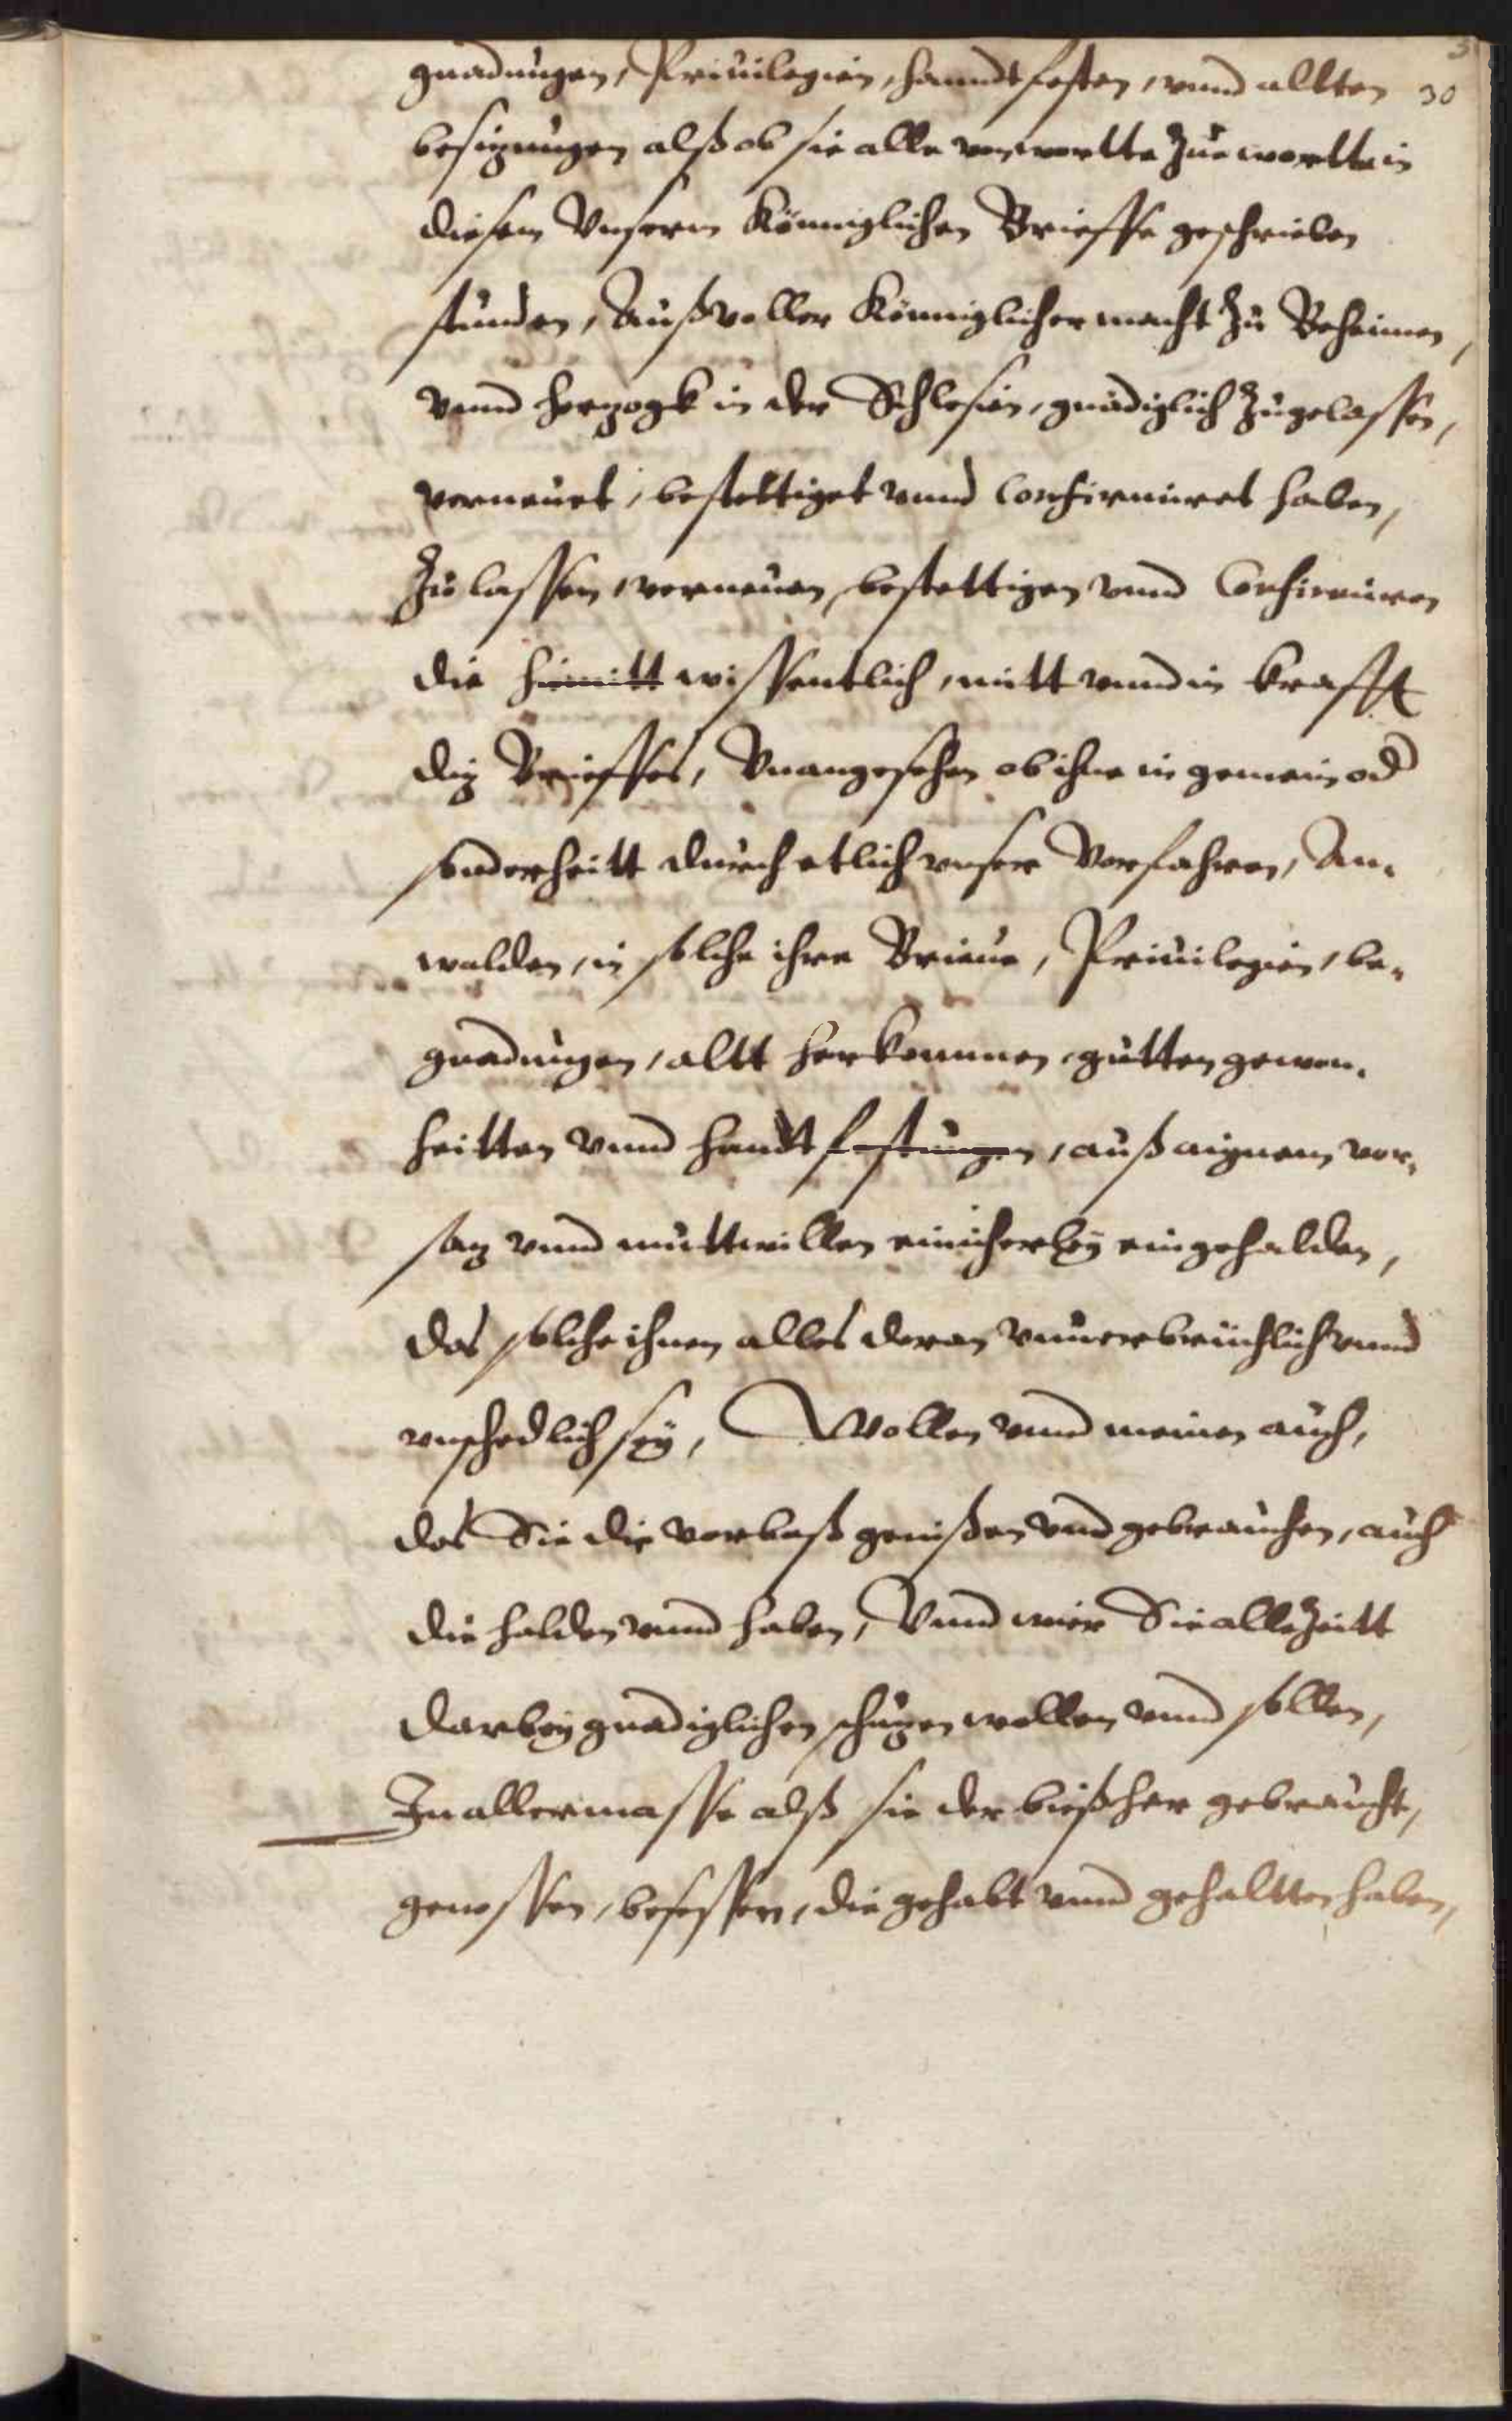 gnadungen, Priuilegien, hanndtfesten, vnnd allten 30
besizungen alß ob sie alle von wortte zue wortte in
diesem Vnserm Königlichen Brieffe geschrieben
stunden, Auß voller Königlicher macht zu Beheimen,
vnnd herzogk in der Schlesien, gnädiglich zugelassen,
verneuet, bestettiget vnnd Confirmiret haben,
Zulassen, verneuen, bestettigen vnnd Confirmiren
die himitt wissentlich, mitt vnnd in krafft
diz Brieffes, Vnangesehen ob ihne in gemein od
sonderheitt durch etlich vnser Vorfahren, An-
walden, in solche ihre Brieue, Priuilegien, be-
gnadungen, altt herkommen, gutten gewon-
heitten vnnd handtfestungen, auß aignem vor-
saz vnnd muttwillen einicherley eingehalden,
das solche ihnen alles daran vnuerbrüchlich vnnd
vnschedlich sey, Wollen vnnd meinen auch,
das Sie die vorbaß genißen vnd gebrauchen, auch
die halden vnnd haben, Vnnd wier Sie allezeitt
darbey gnediglichen schuzen wollen vnnd sollen,
In allermasse alß sie der bießher gebraucht,
genossen, besessen, die gehabt vnnd gehaltten haben,